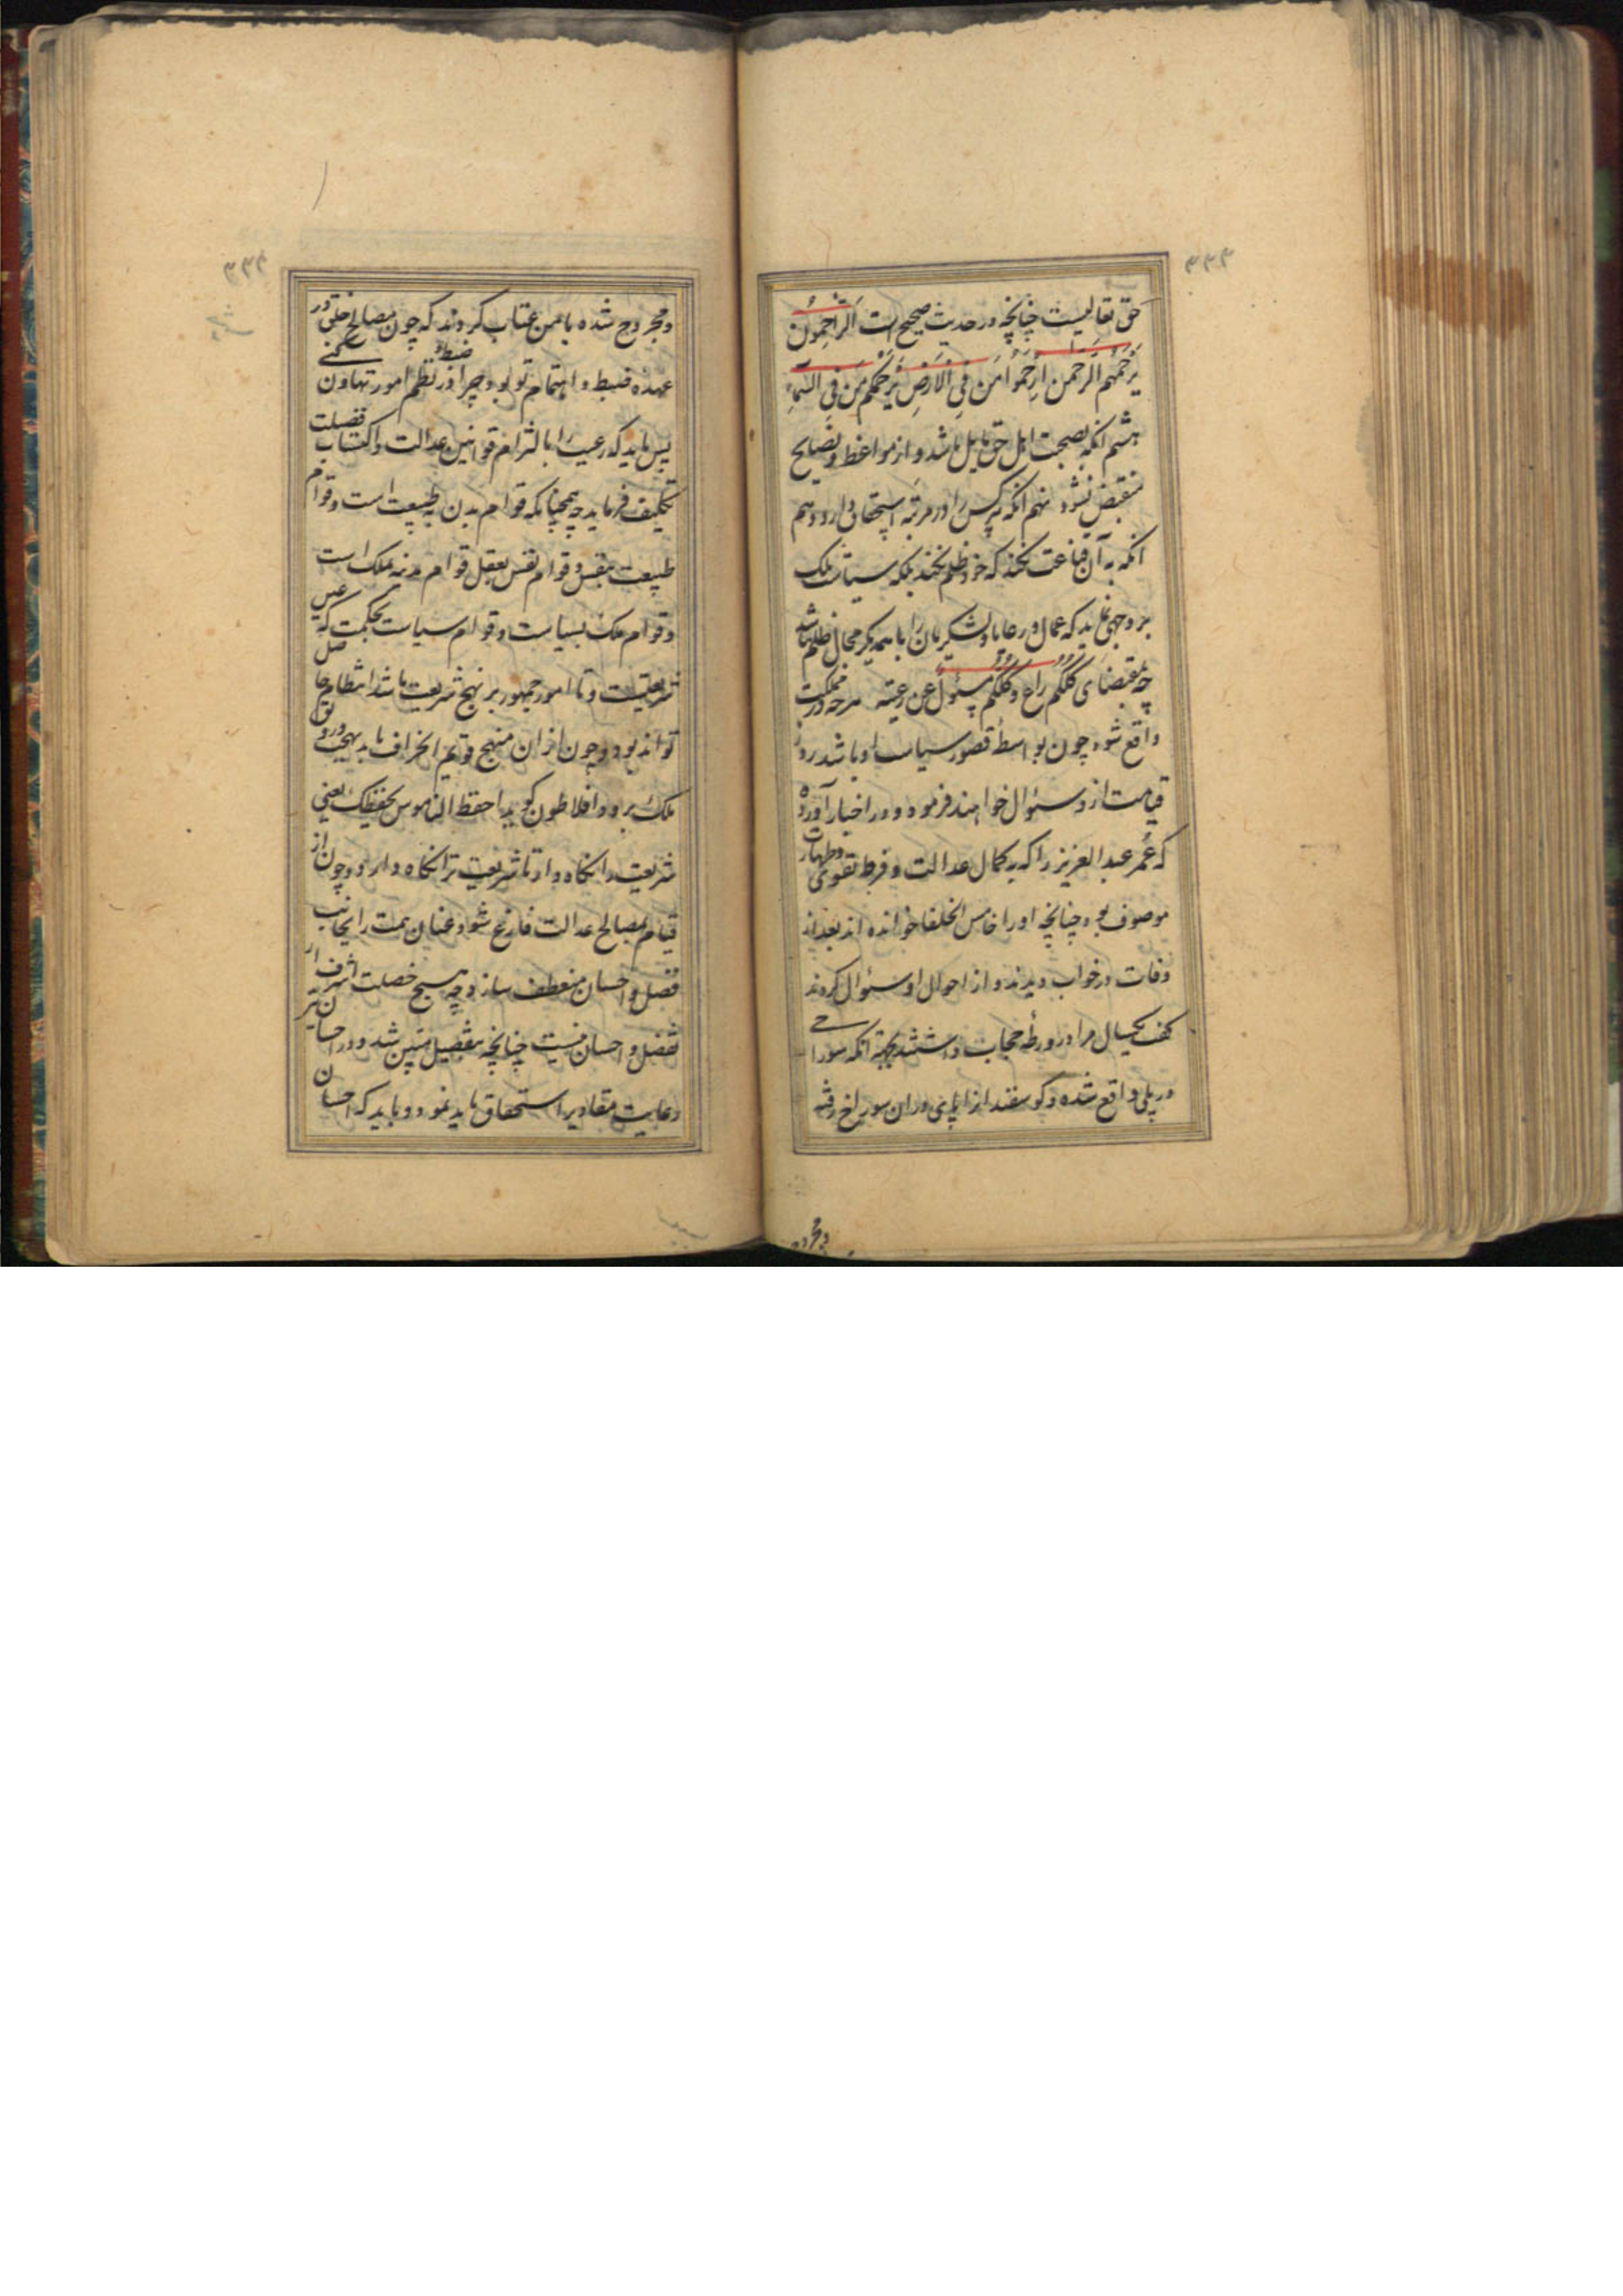 ۳۳۳
حق تعالیست چنانچه در حدیث صحیح است اَلرّاحِمُونَ
یَرْحَمُهُمُ الرَّحْمنُ اِرْحَمُوا مَنْ فِی الْاَرْضِ یَرْحَمْکُمْ مَنْ فِی السَّماءِ
هشتم انکه بصحبت اهل حق مایل باشد و از مواعظ و نصایح
منقبض نشود نهم انکه هر کس را در مرتبهٔ استحقاق دارد دهم
انکه به آن قناعت نکند که خود ظلم نکند بلکه سیاست ملک
بر وجهی نماید که عمال و رعایا و لشکریان را با همدیگر مجال ظلم نباشد
چه بمقتضای کُلُّکُم راعٍ و کُلُّکُم مسئولٌ عن رعیته هرچه در مملکت
واقع شود چون بواسطهٔ قصور سیاست او باشد روز
قیامت از و سئوال خواهند فرمود و در اخبار آورده
که عُمر عبد العزیز را که به کمال عدالت و فرط تقوی و طهارت
موصوف بود چنانچه او را خامس الخلفا خوانده اند بعد از
وفات در خواب دیدند و از احوال او سئوال کردند
گفت یکسال مرا در ورطهٔ حجاب داشتند بجهة انکه سوراخی
در پلی واقع شده و گوسفند از ا پای در ان سوراخ رفته
و مجروح
۳۳۴
و مجروح شده با من عتاب کردند که چون مصالح خلق در
عهدهٔ ضبط و اهتمام تو بود چرا در نظم ضبط امور تهاون کنی
پس باید که رعیت را با لتزام قوانین عدالت و اکتساب فضیلت
تکلیف فرماید چه همچنانکه قوام بدن به طبیعت است و قوام
طبیعت بنفس و قوام نفس بعقل قوام مدنه بملک است
و قوام ملک بسیاست و قوام سیاست بحکمت که عین
شریعتست و تا امور جمهور بر نهج شریعت باشد انتظام حاصل
تواند بود و چون از ان منهج قویم انحراف یابد بهجت و رونق
ملک برود و افلاطون گوید احفظ الناموس یحفظک یعنی
شریعت را نگاه دار تا شریعت ترا نگاه دارد و چون از
قیام بمصالح عدالت فارغ شود عنان همت را بجانب
فضل و احسان منعطف سازد چه هیچ خصلت اشرف از
تفضل و احسان نیست چنانچه بتفصیل متبین شد و در احسان نیز
رعایت مقادیر استحقاق باید نمود و باید که احسان